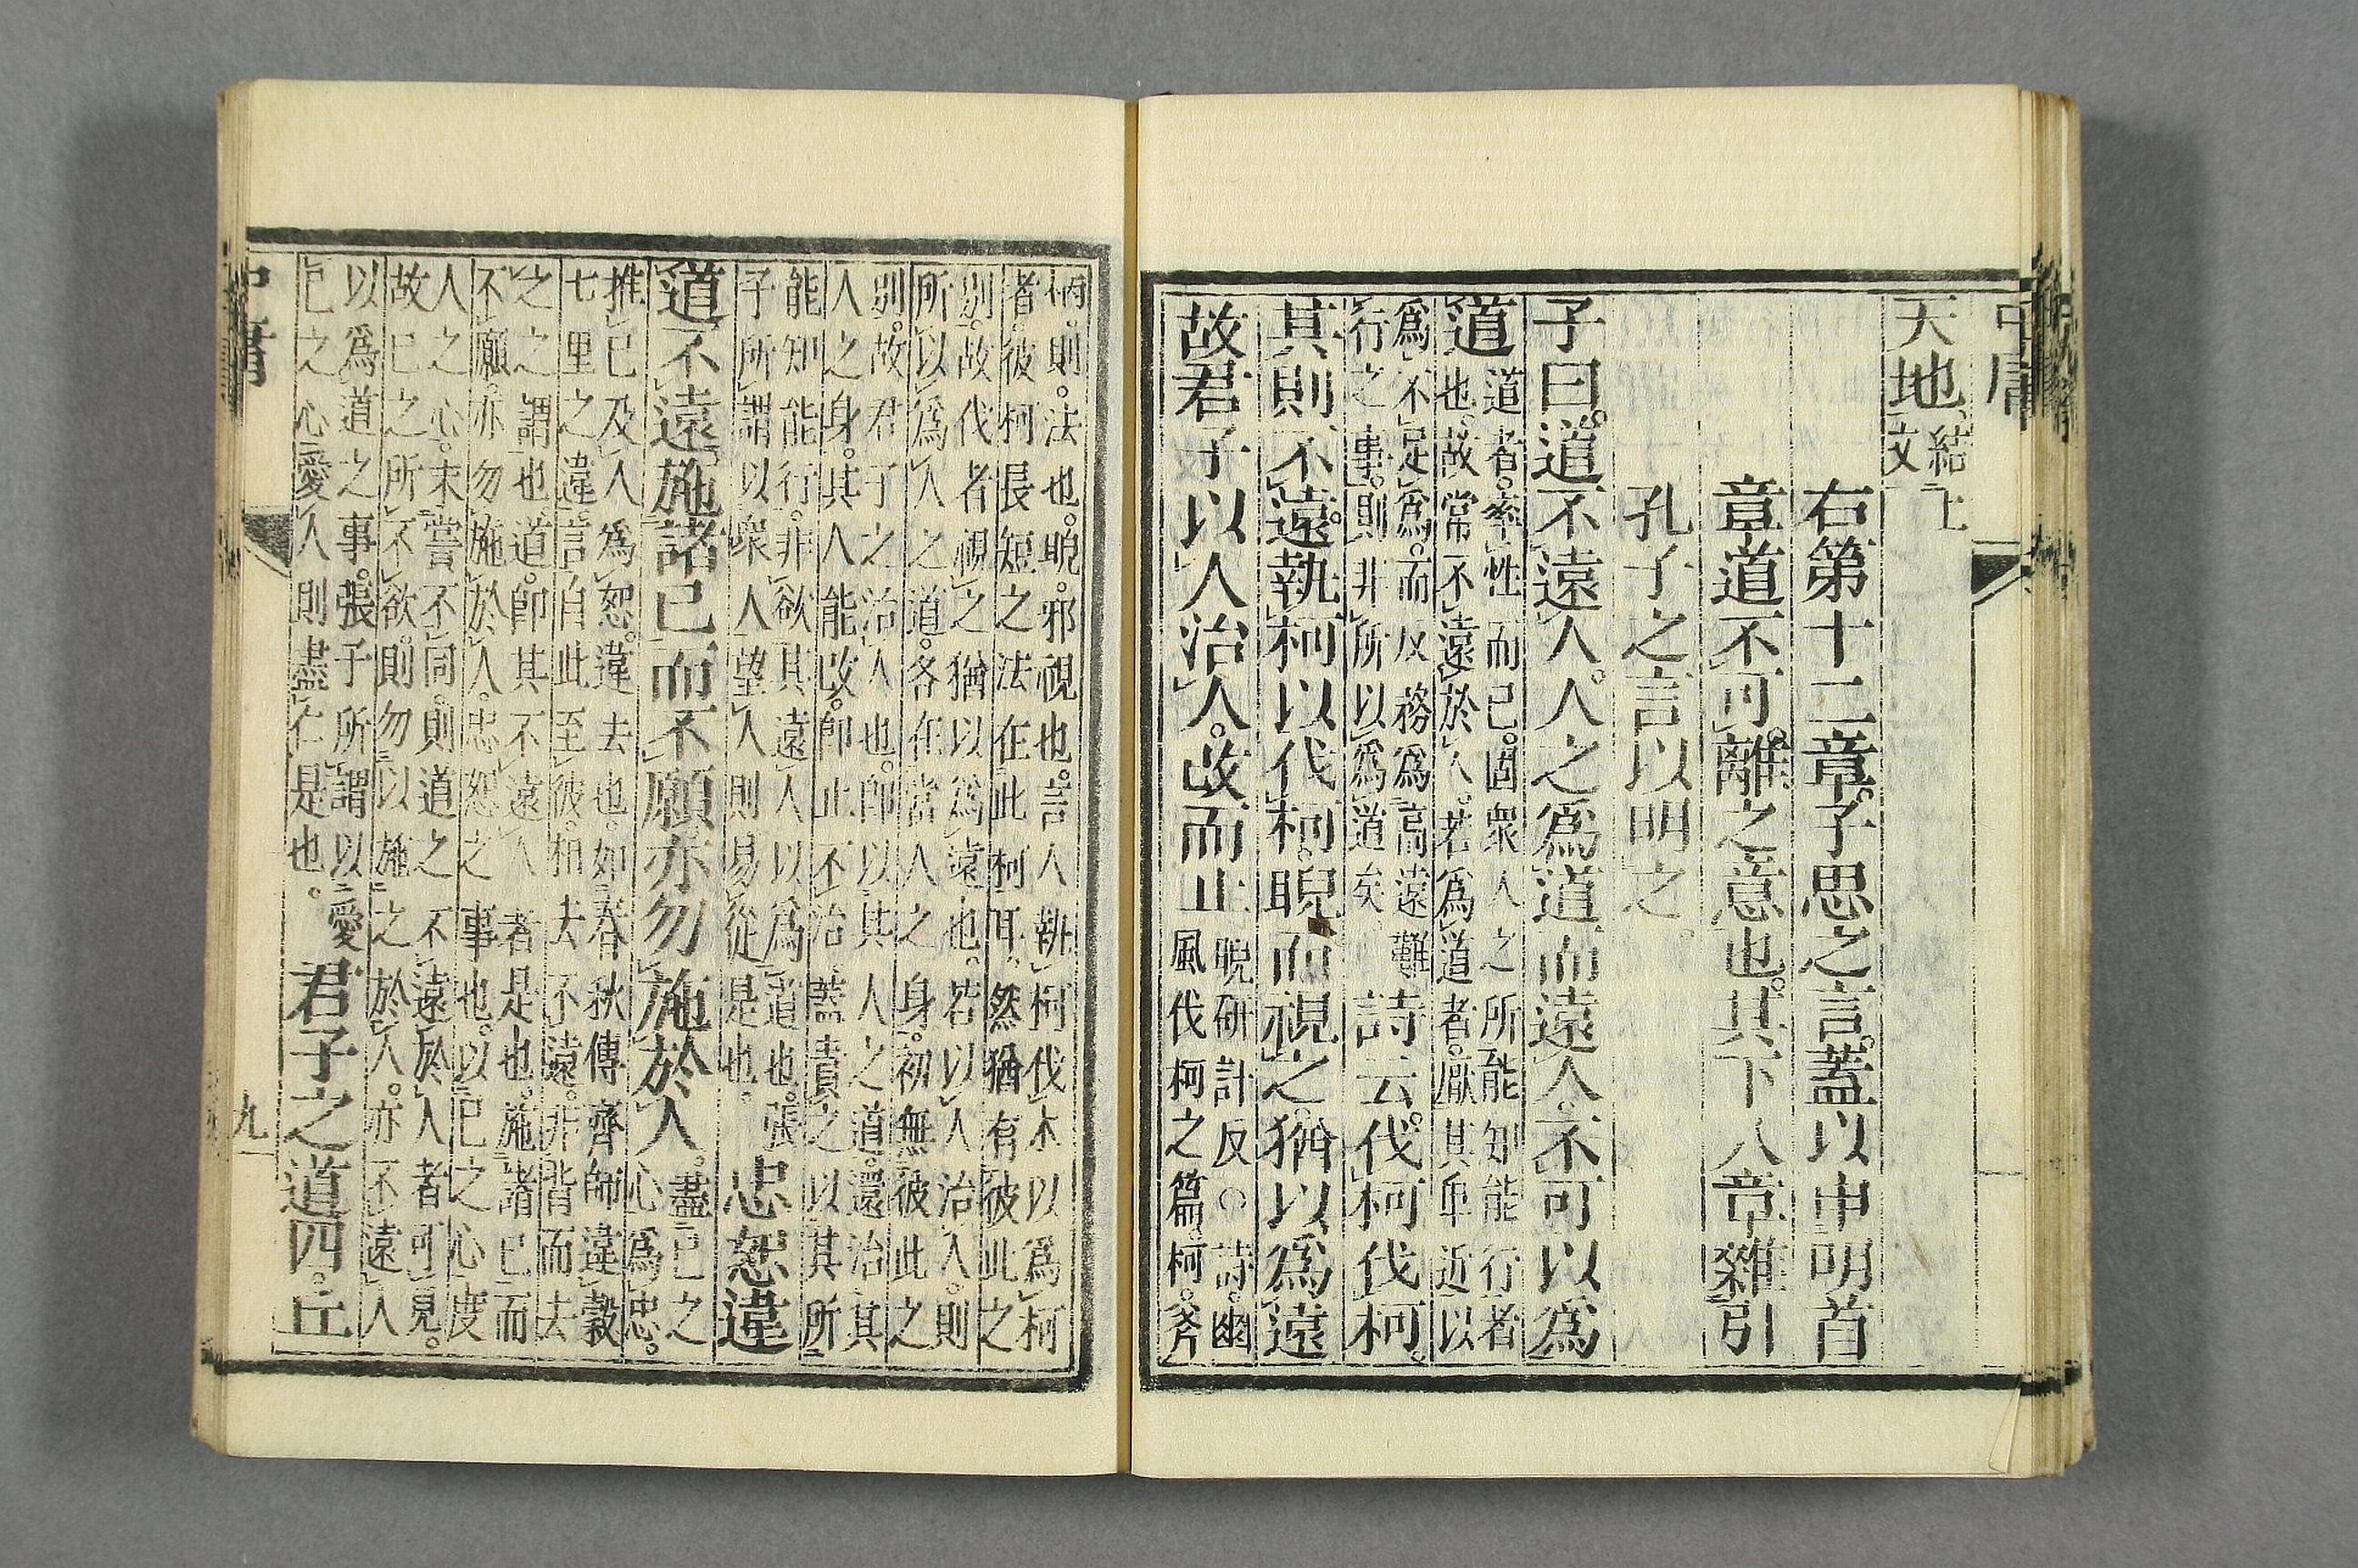 中庸
天地。結上文
右第十二章。子思之言。蓋以申明首
章道不可離之意也。其下八章。雜引
孔子之言以明之。
子曰。道不遠人。人之爲道而遠人。不可以爲
道道者。率性而已。固衆人之所能知能行者也。故常不遠於人。若爲道者。厭其卑近以
爲不足爲。而反務爲高遠難行之事。則非所以爲道矣。詩云。伐柯伐柯。
其則不遠。執柯以伐柯。睨而視之。猶以爲遠
故君子以人治人。改而止睨研計反○詩。豳風伐柯之篇。柯。斧
柄。則。法也。睨。邪視也。言人執柯伐木以爲柯者。彼柯長短之法在此柯耳。然猶有彼此之
別。故伐者視之猶以爲遠也。若以人治人。則所以爲人之道。各在當人之身。初無彼此之
別。故君子之治人也。卽以其人之道。還治其人之身。其人能改。卽止不治。蓋責之以其所
能知能行。非欲其遠人以爲道也。張子所謂以衆人望人則易從是也。忠恕違
道不遠施諸己而不願亦勿施於人。盡己之心爲忠。
推己及人爲恕。違去也。如春秋傳齊師違穀七里之違。言自此至彼。相去不遠。非背而去
之之謂也。道。卽其不遠人者是也。施諸己而不願。亦勿施於人。忠恕之事也。以己之心度
人之心。未嘗不同。則道之不遠於人者可見。故己之所不欲。則勿以施之於人。亦不遠人
以爲道之事。張子所謂以愛己之心愛人則盡仁是也。君子之道四。丘
中庸
九